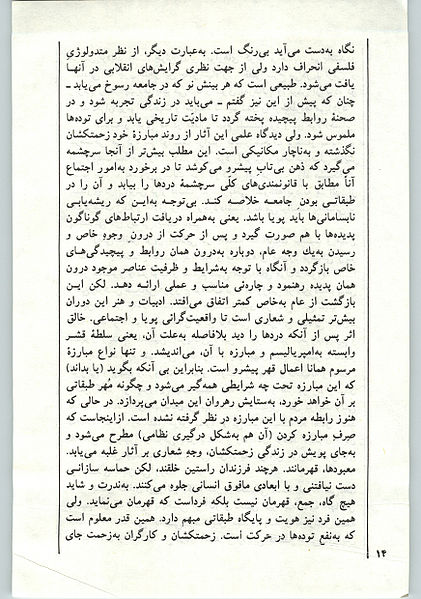 نگاه به‌دست می‌آید بی‌رنگ است. به‌عبارت دیگر، از نظر متدولوژی
فلسفی انحراف دارد ولی از جهت نظری گرایش‌های انقلابی در آنها
یافت می‌شود. طبیعی است که هر بینش نو که در جامعه رسوخ می‌یابد ـ
چنان که پیش از این نیز گفتم ـ می‌باید در زندگی تجربه شود و در
صحنهٔ روابط پیچیده پخته گردد تا مادیّت تاریخی یابد و برای توده‌ها
ملموس شود. ولی دیدگاه علمی این آثار از روند مبارزهٔ خود زحمتکشان
نگذشته و به‌ناچار مکانیکی است. این مطلب بیش‌تر از آنجا سرچشمه
می‌گیرد که ذهن بی‌تاب پیشرو می‌کوشد تا در برخورد به‌امور اجتماع
آناً مطابق با قانونمندی‌های کلّی سرچشمهٔ دردها را بیابد و آن را در
طبقاتی بودن جامعه خلاصه کند. بی‌توجه به‌این که ریشه‌یابی
نابسامانی‌ها باید پویا باشد. یعنی به‌همراه دریافت ارتباط‌های گوناگون
پدیده‌ها با هم صورت گیرد و پس از حرکت از درون وجوه خاص و
رسیدن به‌یك وجه عام، دوباره به‌درون همان روابط و پیچیدگی‌های
خاص بازگردد و آنگاه با توجه به‌شرایط و ظرفیت عناصر موجود درون
همان پدیده رهنمود و چاره‌ئی مناسب و عملی ارائه دهد. لکن این
بازگشت از عام به‌خاص کمتر اتفاق می‌افتد. ادبیات و هنر این دوران
بیش‌تر تمثیلی و شعاری است تا واقعیت‌گرائی پویا و اجتماعی. خالق
اثر پس از آنکه دردها را دید بلافاصله به‌علت آن، یعنی سلطهٔ قشر
وابسته به‌امپریالیسم و مبارزه با آن، می‌اندیشد. و تنها نواع مبارزهٔ
مرسوم همانا اعمال قهر پیشرو است. بنابراین بی آنکه بگوید (یا بداند)
که این مبارزه تحت چه شرایطی همه‌گیر می‌شود و چگونه مُهر طبقاتی
بر آن خواهد خورد، به‌ستایش رهروان این میدان می‌پردازد. در حالی که
هنوز رابطه مردم با این مبارزه در نظر گرفته نشده است. ازاینجاست که
صِرفِ مبارزه کردن (آن هم به‌شکل درگیری نظامی) مطرح می‌شود و
به‌جای پویش در زندگی زحمتکشان، وجهِ شعاری بر آثار غلبه می‌یابد.
معبودها، قهرمانند. هرچند فرزندان راستین خلقند، لکن حماسه سازانی
دست نیافتنی و با ابعادی مافوق انسانی جلوه می‌کنند. به‌ندرت و شاید
هیچ گاه، جمع، قهرمان نیست بلکه فرداست که قهرمان می‌نماید. ولی
همین فرد نیز هویت و پایگاه طبقاتی مبهم دارد. همین قدر معلوم است
که به‌نفع توده‌ها در حرکت است. زحمتکشان و کارگران به‌زحمت جای
۱۴